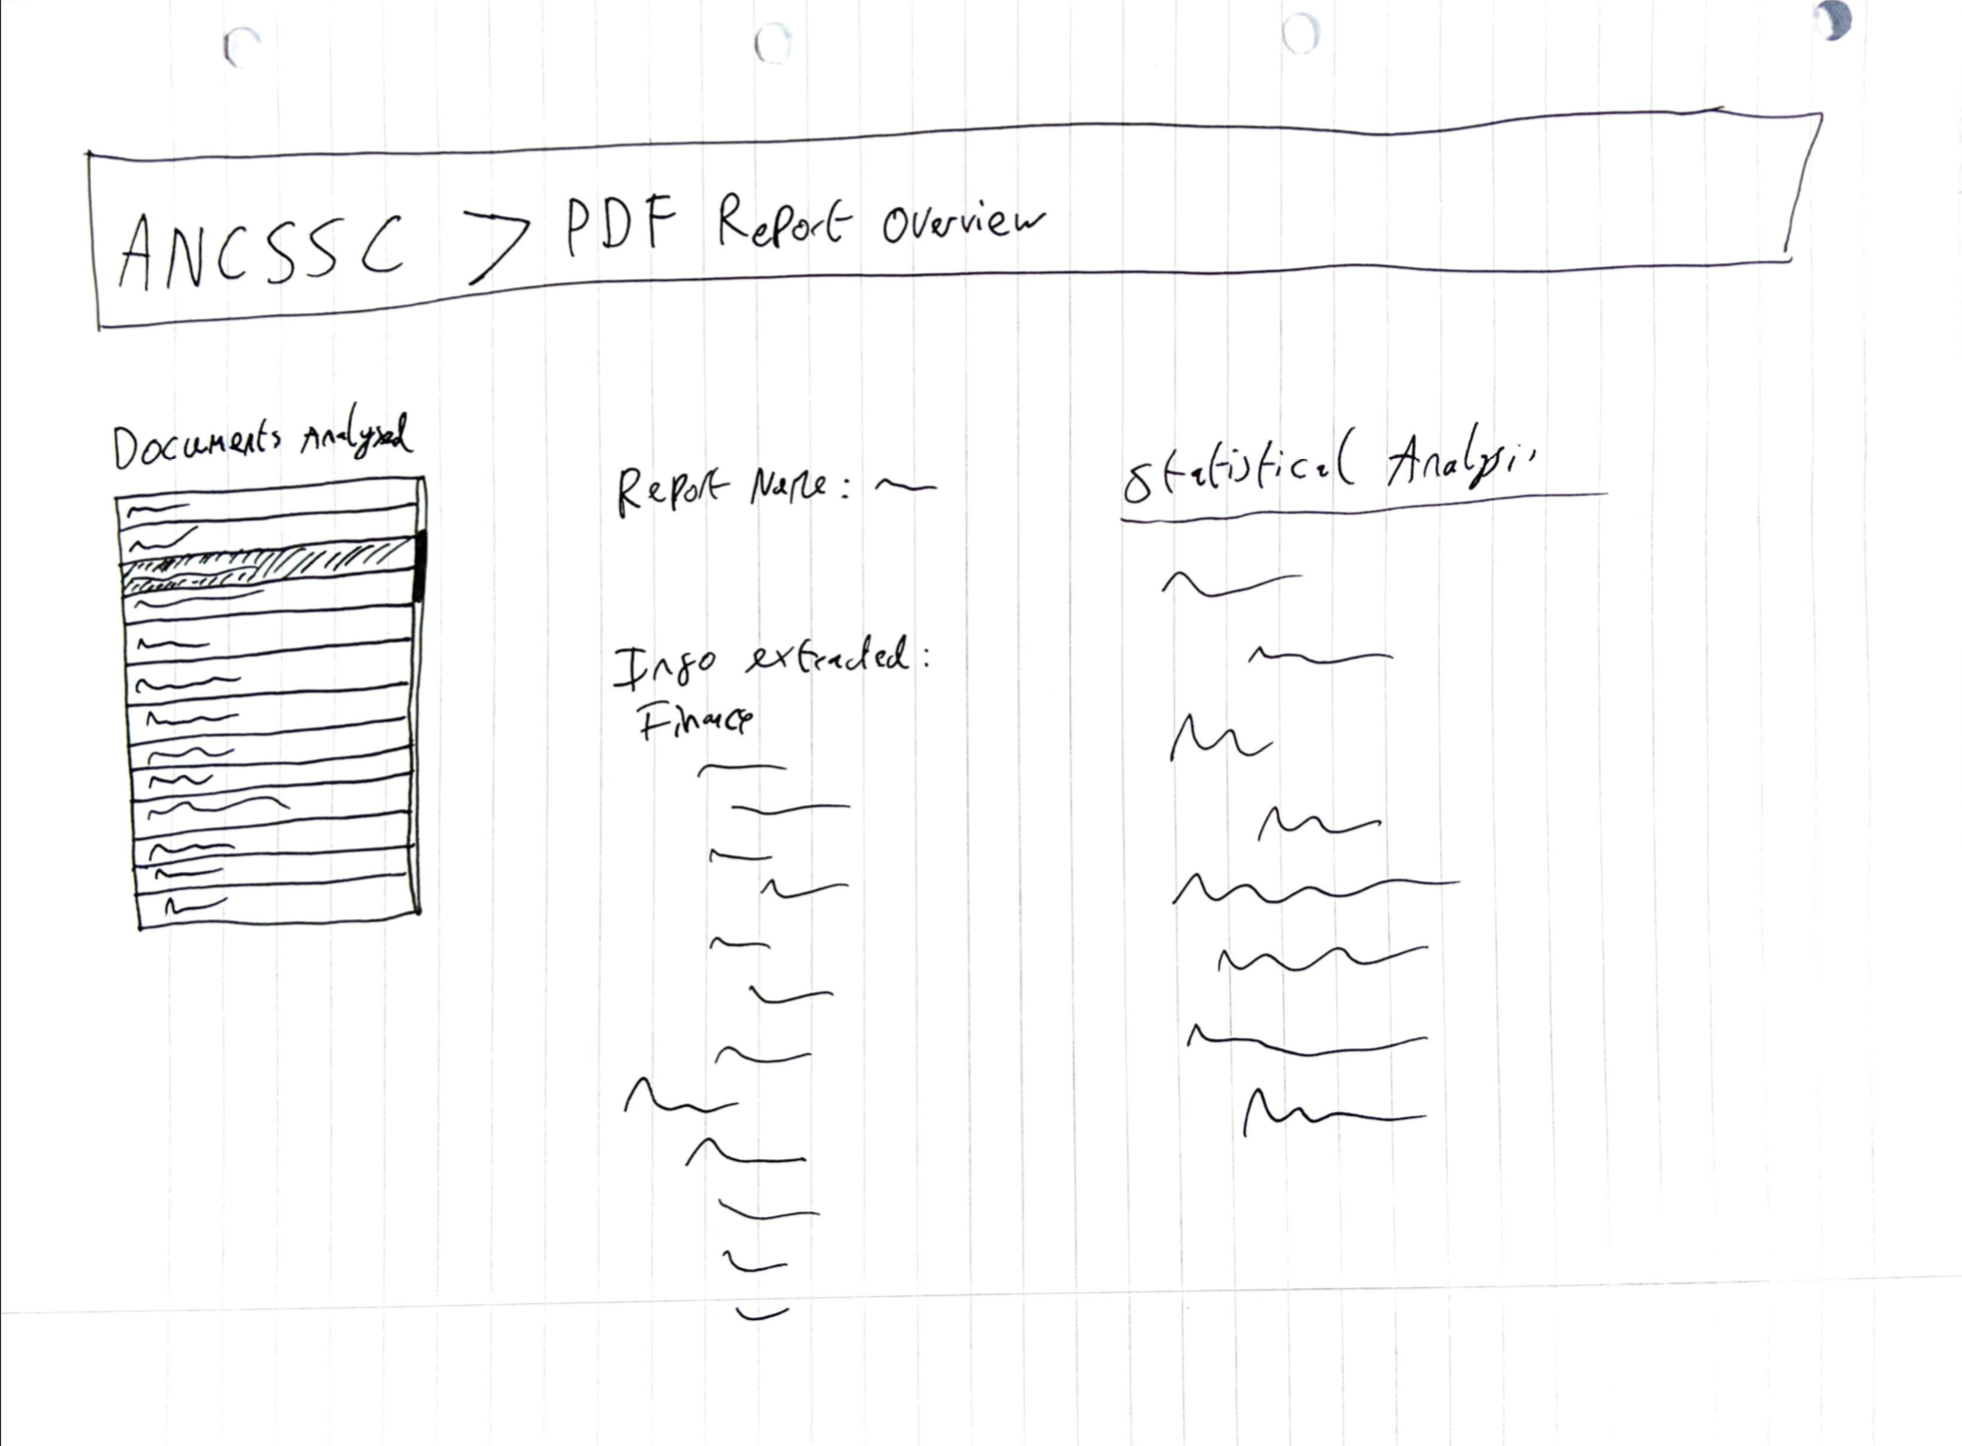 ANCSSC > PDF Report Overview
Documents Analysed
Report Name:
Info extracted:
Finance
Statistical Analysis